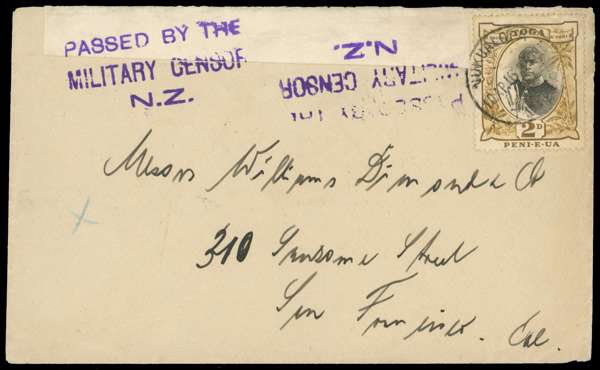 PASSED BY THE
MILITARY CENSOR
N.Z.
PASSED BY THE
MILITARY CENSOR
N.Z.
TOGA
2D
PENI-E-UA
Messrs Williams Dimond & Co
310 Sansome Street
San Francisco. Cal.